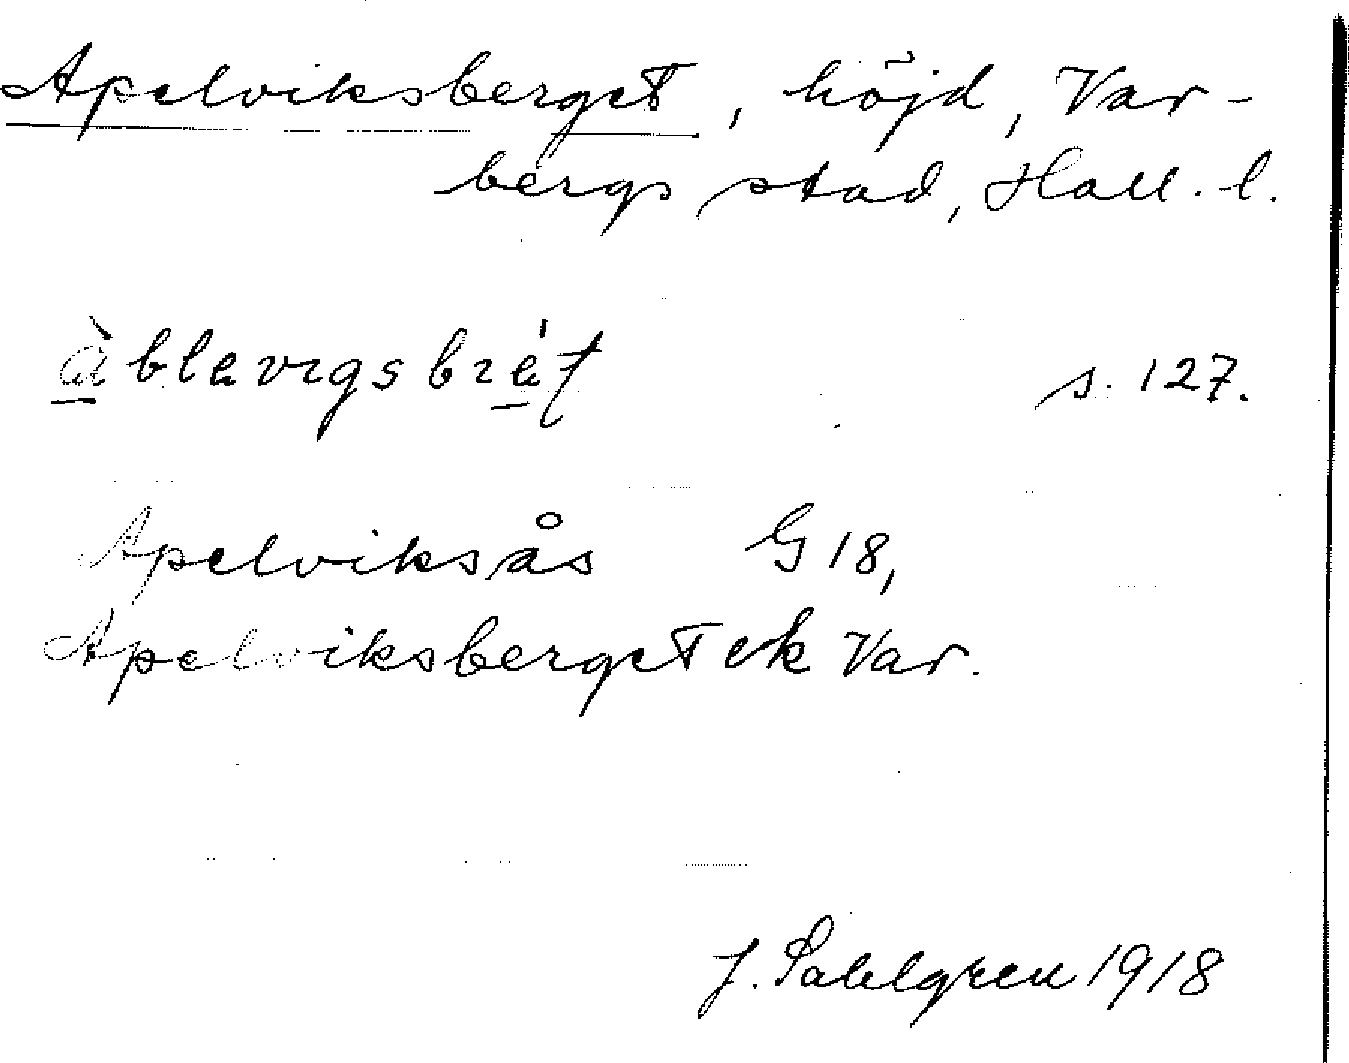 Apelviksberget, höjd, Var-
bergs stad, Hall. l.
àblavıgsbrét s. 127.
Apelviksås G 18,
Apelviksberget ek Var.
J. Sahlgren 1918